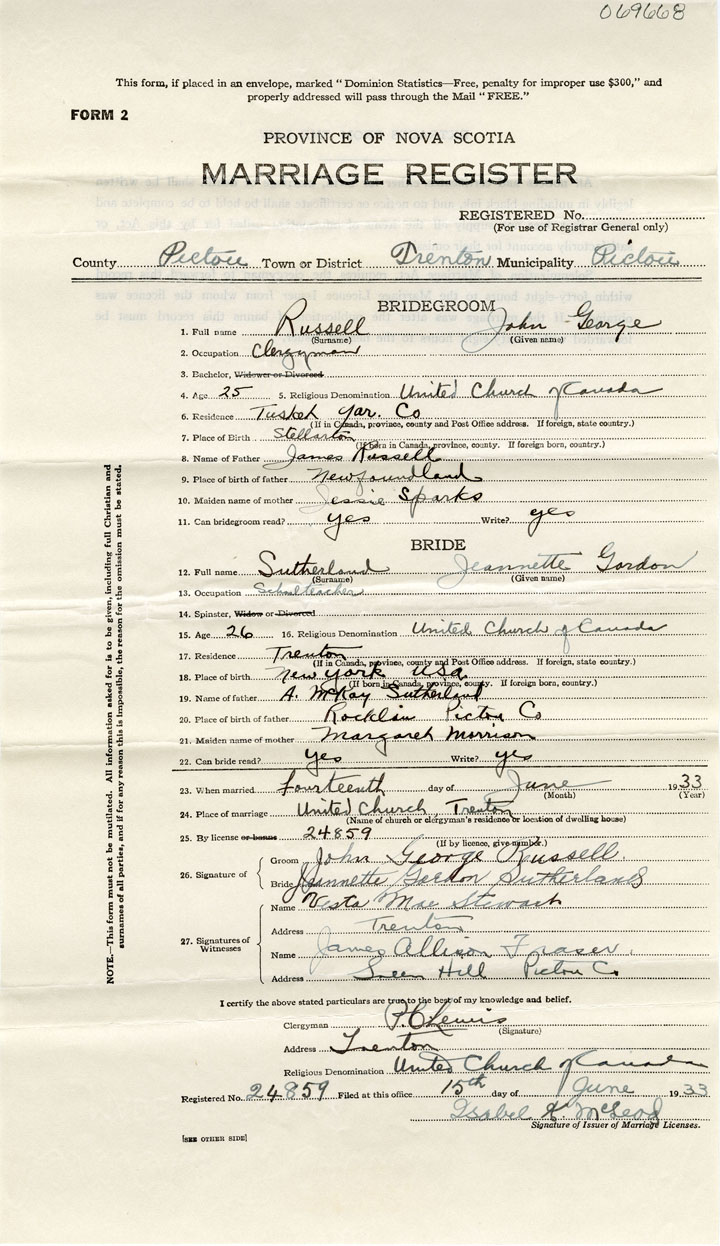 069668
This form, if placed in an envelope, marked "Dominion Statistics—Free, penalty for improper use $300," and
properly addressed will pass through the Mail "FREE."
FORM 2
PROVINCE OF NOVA SCOTIA
MARRIAGE REGISTER
REGISTERED No.
(For use of Registrar General only)
County Pictou Town or District Trenton Municipality Pictou
BRIDEGROOM
1. Full name Russell John George
(Surname) (Given name)
2. Occupation Clergyman
3. Bachelor, Widower or Divorced
4. Age 25 5. Religious Denomination United Church of Canada
6. Residence Tusket Yar. Co
(If in Canada, province, county and Post Office address. If foreign, state country.)
7. Place of Birth Stellarton
(If born in Canada, province, county. If foreign born, country.)
8. Name of Father James Russell
9. Place of birth of father Newfoundland
10. Maiden name of mother Jessie Sparks
11. Can bridegroom read? yes Write? yes
BRIDE
12. Full name Sutherland Jeannette Gordon
(Surname) (Given name)
13. Occupation Schoolteacher
14. Spinster, Widow or Divorced
15. Age 26 16. Religious Denomination United Church of Canada
17. Residence Trenton
(If in Canada, province, county and Post Office address. If foreign, state country.)
18. Place of birth New York USA
(If born in Canada, province, county. If foreign born, country.)
19. Name of father A. McKay Sutherland
20. Place of birth of father Rocklin Pictou Co
21. Maiden name of mother Margaret Morrison
22. Can bride read? yes Write? yes
23. When married fourteenth day of June 1933
(Month) (Year)
24. Place of marriage United Church, Trenton
(Name of church or clergyman's residence or location of dwelling house)
25. By license or banns 24859
(If by licence, give number.)
26. Signature of
Groom John George Russell
Bride Jeannette Gordon Sutherland
27. Signatures of Witnesses
Name Vesta Mae Stewart
Address Trenton
Name James Allison Fraser
Address Green Hill Pictou Co
I certify the above stated particulars are true to the best of my knowledge and belief.
Clergyman P. C. Lewis
(Signature)
Address Trenton
Religious Denomination United Church of Canada
Registered No. 24859 Filed at this office 15th day of June 1933
Isabel K. McLeod
Signature of Issuer of Marriage Licenses.
[SEE OTHER SIDE]
NOTE.—This form must not be mutilated. All information asked for is to be given, including full Christian and
surnames of all parties, and if for any reason this is impossible, the reason for the omission must be stated.